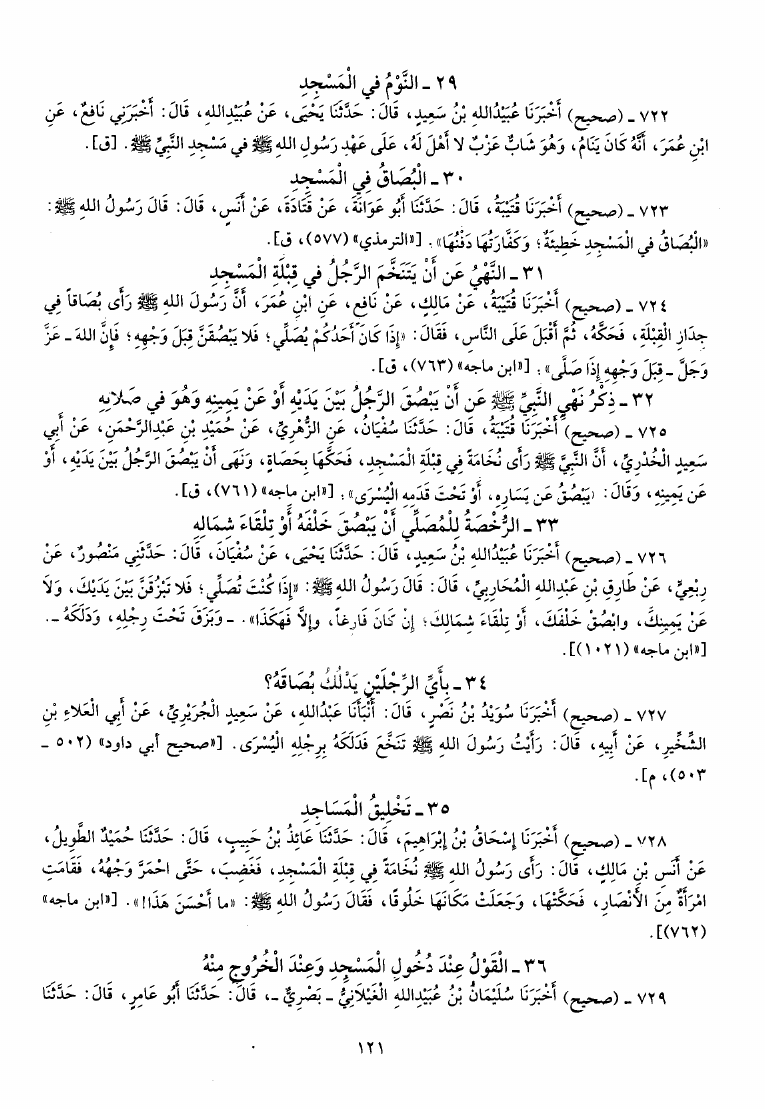 ٢٩ ـ النَّوْمُ في الْمَسْجِدِ
٧٢٢ ـ (صحيح) أَخْبَرَنَا عُبَيْدُاللهِ بْنُ سَعِيدٍ، قَالَ: حَدَّثَنَا يَحْيَى، عَنْ عُبَيْدِاللهِ، قَالَ: أَخْبَرَنِي نَافِعٌ، عَنِ
ابْنِ عُمَرَ، أَنَّهُ كَانَ يَنَامُ، وَهُوَ شَابٌّ عَزْبٌ لا أَهْلَ لَهُ، عَلَى عَهْدِ رَسُولِ اللهِ ﷺ في مَسْجِدِ النَّبِيِّ ﷺ. [ق].
٣٠ ـ الْبُصَاقُ فِي الْمَسْجِدِ
٧٢٣ ـ (صحيح) أَخْبَرَنَا قُتَيْبَةُ، قَالَ: حَدَّثَنَا أَبُو عَوَانَةَ، عَنْ قَتَادَةَ، عَنْ أَنَسٍ، قَالَ: قَالَ رَسُولُ اللهِ ﷺ:
«الْبُصَاقُ في الْمَسْجِدِ خَطِيئَةٌ؛ وَكَفَّارَتُهَا دَفْنُهَا». [«الترمذي» (٥٧٧)، ق].
٣١ ـ النَّهْيُ عَن أَنْ يَتَنَخَّمَ الرَّجُلُ في قِبْلَةِ الْمَسْجِدِ
٧٢٤ ـ (صحيح) أَخْبَرَنَا قُتَيْبَةُ، عَنْ مَالِكٍ، عَنْ نَافِعٍ، عَنِ ابْنِ عُمَرَ، أَنَّ رَسُولَ اللهِ ﷺ رَأَى بُصَاقاً فِي
جِدَارِ الْقِبْلَةِ، فَحَكَّهُ، ثُمَّ أَقْبَلَ عَلَى النَّاسِ، فَقَالَ: «إِذَا كَانَ أَحَدُكُمْ يُصَلِّي؛ فَلا يَبْصُقَنَّ قِبَلَ وَجْهِهِ؛ فَإِنَّ اللهَ ـ عَزَّ
وَجَلَّ ـ قِبَلَ وَجْهِهِ إِذَا صَلَّى». [«ابن ماجه» (٧٦٣)، ق].
٣٢ ـ ذِكْرُ نَهْيِ النَّبِيِّ ﷺ عَن أَنْ يَبْصُقَ الرَّجُلُ بَيْنَ يَدَيْهِ أَوْ عَنْ يَمِينِهِ وَهُوَ فِي صَلاتِهِ
٧٢٥ ـ (صحيح) أَخْبَرَنَا قُتَيْبَةُ، قَالَ: حَدَّثَنَا سُفْيَانُ، عَنِ الزُّهْرِيِّ، عَنْ حُمَيْدِ بْنِ عَبْدِالرَّحْمَنِ، عَنْ أَبِي
سَعِيدٍ الْخُدْرِيِّ، أَنَّ النَّبِيَّ ﷺ رَأَى نُخَامَةً فِي قِبْلَةِ الْمَسْجِدِ، فَحَكَّهَا بِحَصَاةٍ، وَنَهَى أَنْ يَبْصُقَ الرَّجُلُ بَيْنَ يَدَيْهِ، أَوْ
عَن يَمِينِهِ، وَقَالَ: «يَبْصُقُ عَن يَسَارِهِ، أَوْ تَحْتَ قَدَمِهِ الْيُسْرَى». [«ابن ماجه» (٧٦١)، ق].
٣٣ ـ الرُّخْصَةُ لِلْمُصَلِّي أَنْ يَبْصُقَ خَلْفَهُ أَوْ تِلْقَاءَ شِمَالِهِ
٧٢٦ ـ (صحيح) أَخْبَرَنَا عُبَيْدُاللهِ بْنُ سَعِيدٍ، قَالَ: حَدَّثَنَا يَحْيَى، عَنْ سُفْيَانَ، قَالَ: حَدَّثَنِي مَنْصُورٌ، عَنْ
رِبْعِيٍّ، عَنْ طَارِقِ بْنِ عَبْدِاللهِ الْمُحَارِبِيِّ، قَالَ: قَالَ رَسُولُ اللهِ ﷺ: «إِذَا كُنْتَ تُصَلِّي؛ فَلا تَبْزُقَنَّ بَيْنَ يَدَيْكَ، وَلاَ
عَنْ يَمِينِكَ، وابْصُقْ خَلْفَكَ، أَوْ تِلْقَاءَ شِمَالِكَ؛ إِنْ كَانَ فَارِغاً، وإِلَّا فَهَكَذَا». ـ وَبَزَقَ تَحْتَ رِجْلِهِ، وَدَلَكَهُ ـ.
[«ابن ماجه» (١٠٢١)].
٣٤ ـ بِأَيِّ الرِّجْلَيْنِ يَدْلُكُ بُصَاقَهُ؟
٧٢٧ ـ (صحيح) أَخْبَرَنَا سُوَيْدُ بْنُ نَصْرٍ، قَالَ: أَنْبَأَنَا عَبْدُاللهِ، عَنْ سَعِيدٍ الْجُرَيْرِيِّ، عَنْ أَبِي الْعَلاءِ بْنِ
الشِّخِّيرِ، عَنْ أَبِيهِ، قَالَ: رَأَيْتُ رَسُولَ اللهِ ﷺ تَنَخَّعَ فَدَلَكَهُ بِرِجْلِهِ الْيُسْرَى. [«صحيح أبي داود» (٥٠٢ ـ
٥٠٣)، م].
٣٥ ـ تَخْلِيقُ الْمَسَاجِدِ
٧٢٨ ـ (صحيح) أَخْبَرَنَا إِسْحَاقُ بْنُ إِبْرَاهِيمَ، قَالَ: حَدَّثَنَا عَائِذُ بْنُ حَبِيبٍ، قَالَ: حَدَّثَنَا حُمَيْدٌ الطَّوِيلُ،
عَنْ أَنَسِ بْنِ مَالِكٍ، قَالَ: رَأَى رَسُولُ اللهِ ﷺ نُخَامَةً فِي قِبْلَةِ الْمَسْجِدِ، فَغَضِبَ، حَتَّى احْمَرَّ وَجْهُهُ، فَقَامَتِ
امْرَأَةٌ مِنَ الأَنْصَارِ، فَحَكَّتْهَا، وَجَعَلَتْ مَكَانَهَا خَلُوقًا، فَقَالَ رَسُولُ اللهِ ﷺ: «ما أَحْسَنَ هَذَا!». [«ابن ماجه»
(٧٦٢)].
٣٦ ـ الْقَوْلُ عِنْدَ دُخُولِ الْمَسْجِدِ وَعِنْدَ الْخُرُوجِ مِنْهُ
٧٢٩ ـ (صحيح) أَخْبَرَنَا سُلَيْمَانُ بْنُ عُبَيْدِاللهِ الْغَيْلَانِيُّ ـ بَصْرِيٌّ ـ، قَالَ: حَدَّثَنَا أَبُو عَامِرٍ، قَالَ: حَدَّثَنَا
١٢١